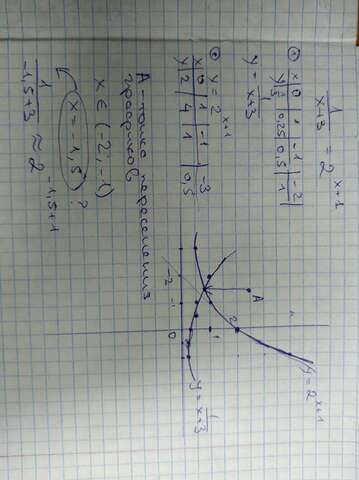 1/(x+3) = 2^(x+1)
① x | 0 | 1 | -1 | -2
y | 1/3 | 0,25 | 0,5 | 1
y = 1/(x+3)
② y = 2^(x+1)
x | 0 | 1 | -1 | -3
y | 2 | 4 | 1 | 0,5
А - точка пересечения
графиков
x ∈ (-2; -1)
x = -1,5 ?
1/(-1,5+3) ≈ 2^(-1,5+1)
A
-2
-1
0
1
2
y = 2^(x+1)
y = 1/(x+3)